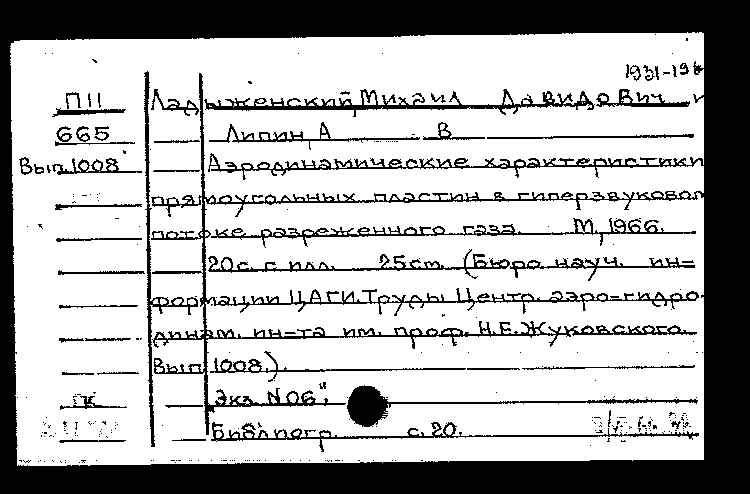 1931-19
П11 Ладыженский, Михаил Давидович и
665 Липин, А В
Вып.1008 Аэродинамические характеристики
прямоугольных пластин в гиперзвуковом
потоке разреженного газа. М., 1966.
20с. с илл. 25см. (Бюро науч. ин=
формации ЦАГИ. Труды Центр. аэро=гидро-
динам. ин=та им. проф. Н.Е. Жуковского.
Вып. 1008.).
ГК Экз. N06".
Библиогр. с. 20.